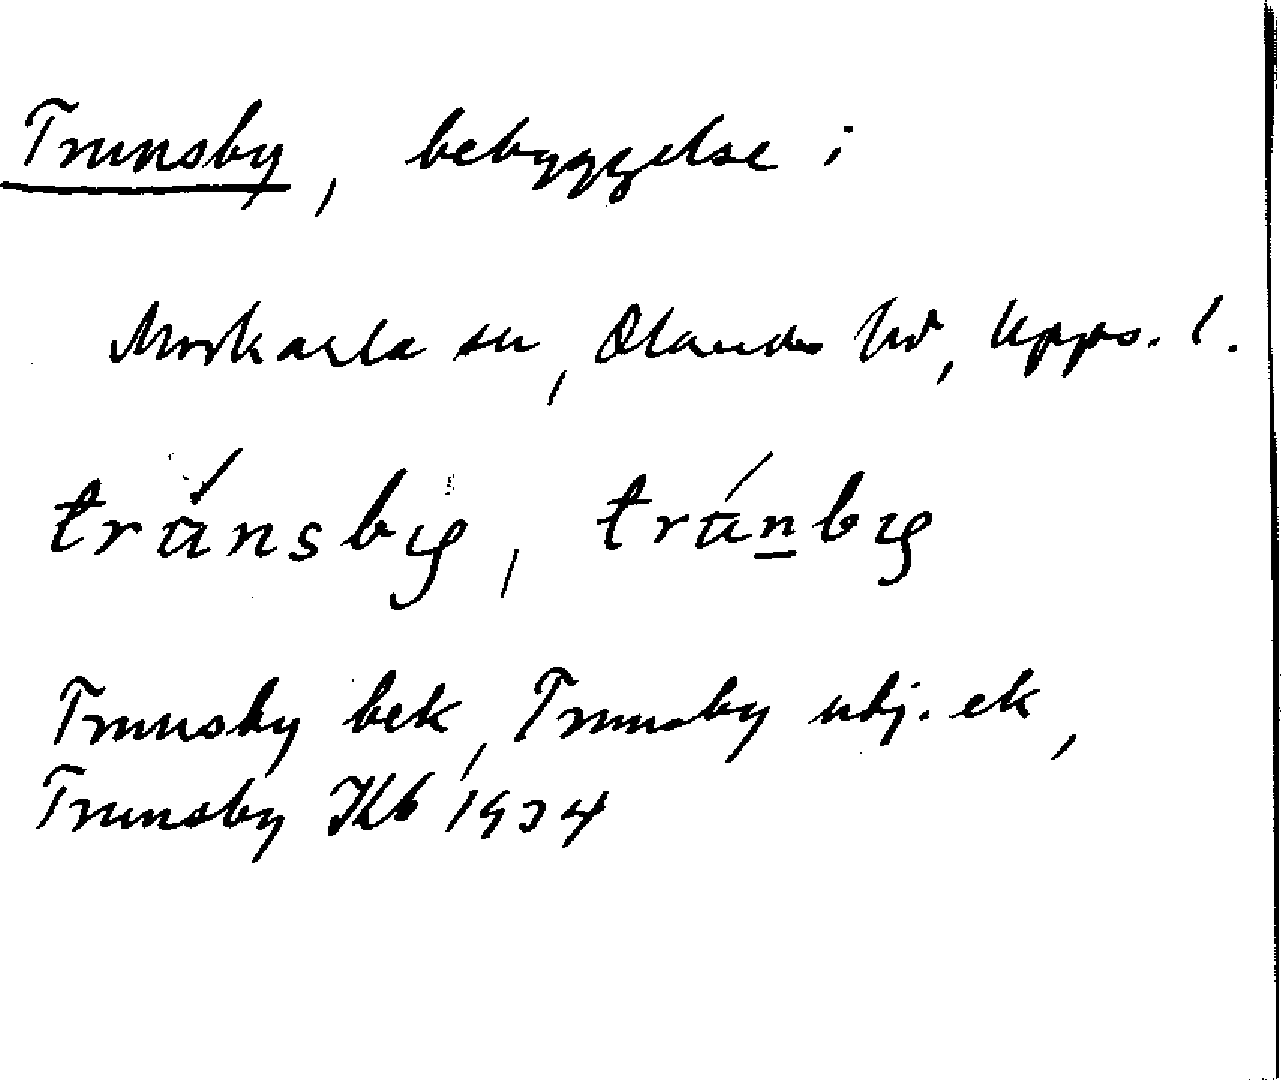 Trunsby, bebyggelse i
Morkarla sn, Olands hd, Upps. l.
tru̇nsby, trún̲by
Trunsby bek, Trunsby ubj. ek,
Trunsby Kb 1934